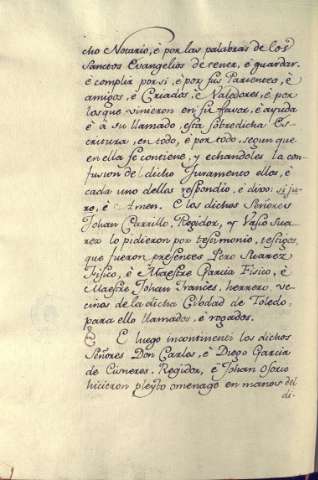 cho Notario, è por las palabras de los
Sanctos Evangelios de tener, è guardar,
è complir por si, è por sus Parientes, è
amigos, è Criados, è Valedores, è por
los que vinieron en su favor, è ayuda
è à su llamado, esta sobredicha Es-
critura, en todo, è por todo, segun que
en ella se contiene, y echandoles la con-
fusion del dicho Juramento ellos, è
cada uno dellos respondio, è dixo: si ju-
ro, è Amen. E los dichos Señores
Johan Carrillo, Regidor, y Vasco Sua-
rez lo pidieron por testimonio, testigos,
que fueron presentes Pero Suarez
Fisico, è Maestre Garcia Fisico, è
Maestre Johan Frances, herrero, ve-
cinos de la dicha Cibdad de Toledo,
para ello llamados, è rogados.
E luego incontinenti los dichos
Señores Don Carlos, è Diego Garcia
de Cisneros, Regidor, è Johan Osorio
hicieron pleyto omenage en manos del
di-